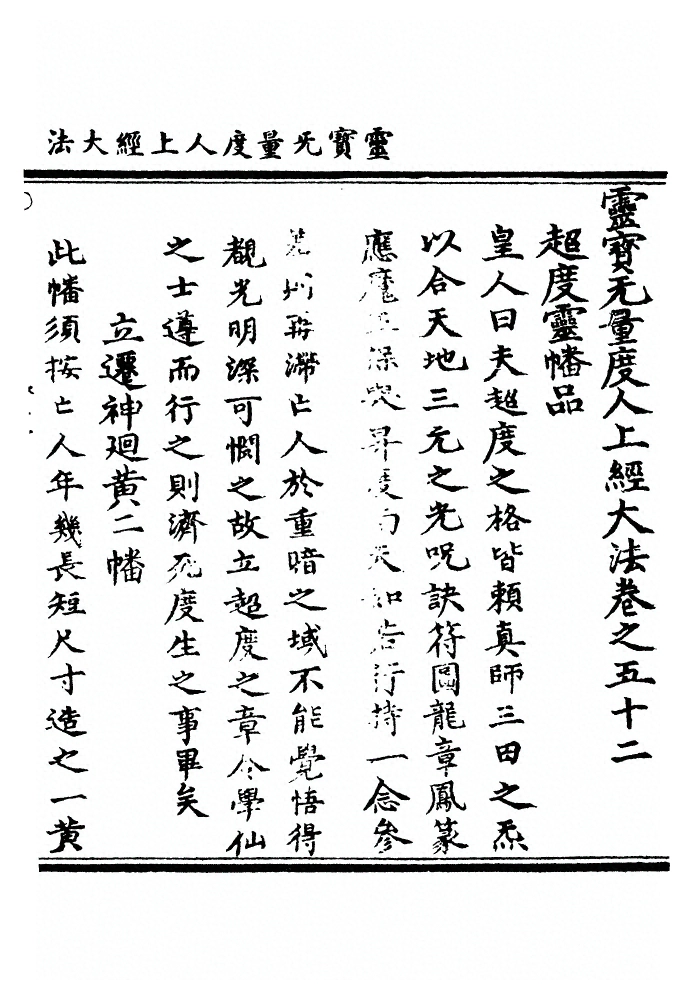 靈寶旡量度人上經大法
靈寶无量度人上經大法卷之五十二
超度靈幡品
皇人曰夫超度之格皆賴真師三田之炁
以合天地三元之光呪訣符圖龍章鳳篆
應魔王保舉昇度南天如若行持一念參
滯亡人於重暗之域不能覺悟得
覩光明深可憫之故立超度之章令學仙
之士遵而行之則濟死度生之事畢矣
立遷神廻黃二幡
此幡須按亡人年幾長短尺寸造之一黃